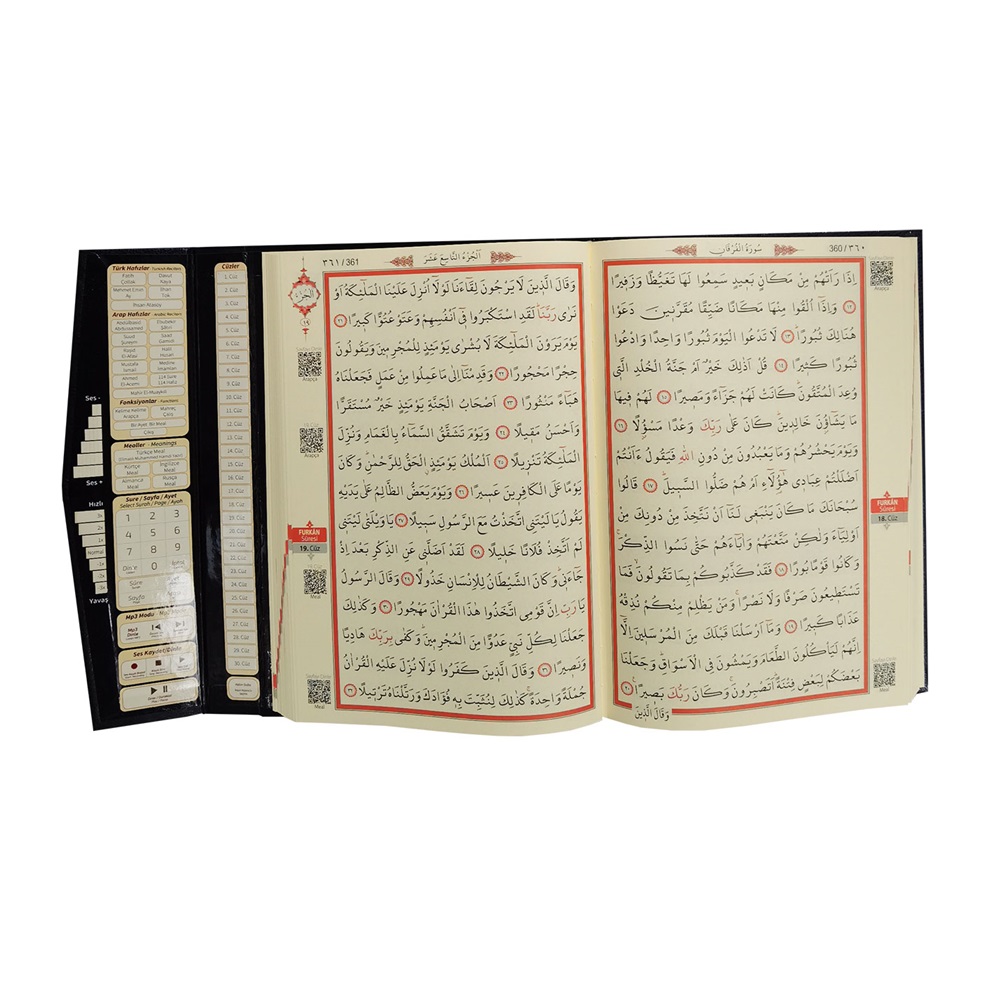 سُورَةُ الْفُرْقَانِ
360 / ٣٦٠
اِذَا رَاَتْهُمْ مِنْ مَكَانٍ بَعٖيدٍ سَمِعُوا لَهَا تَغَيُّظًا وَزَفٖيرًا
﴿١٢﴾ وَاِذَٓا اُلْقُوا مِنْهَا مَكَانًا ضَيِّقًا مُقَرَّنٖينَ دَعَوْا
هُنَالِكَ ثُبُورًا ﴿١٣﴾ لَا تَدْعُوا الْيَوْمَ ثُبُورًا وَاحِدًا وَادْعُوا
ثُبُورًا كَثٖيرًا ﴿١٤﴾ قُلْ اَذٰلِكَ خَيْرٌ اَمْ جَنَّةُ الْخُلْدِ الَّتٖي
وُعِدَ الْمُتَّقُونَ كَانَتْ لَهُمْ جَزَٓاءً وَمَصٖيرًا ﴿١٥﴾ لَهُمْ فٖيهَا
مَا يَشَٓاؤُ۫نَ خَالِدٖينَ كَانَ عَلٰى رَبِّكَ وَعْدًا مَسْؤُ۫لًا ﴿١٦﴾
وَيَوْمَ يَحْشُرُهُمْ وَمَا يَعْبُدُونَ مِنْ دُونِ اللّٰهِ فَيَقُولُ ءَاَنْتُمْ
اَضْلَلْتُمْ عِبَادٖي هٰٓؤُ۬لَٓاءِ اَمْ هُمْ ضَلُّوا السَّبٖيلَ ﴿١٧﴾ قَالُوا
سُبْحَانَكَ مَا كَانَ يَنْبَغٖي لَنَٓا اَنْ نَتَّخِذَ مِنْ دُونِكَ مِنْ
اَوْلِيَٓاءَ وَلٰكِنْ مَتَّعْتَهُمْ وَاٰبَٓاءَهُمْ حَتّٰى نَسُوا الذِّكْرَ
وَكَانُوا قَوْمًا بُورًا ﴿١٨﴾ فَقَدْ كَذَّبُوكُمْ بِمَا تَقُولُونَ فَمَا
تَسْتَطٖيعُونَ صَرْفًا وَلَا نَصْرًا وَمَنْ يَظْلِمْ مِنْكُمْ نُذِقْهُ
عَذَابًا كَبٖيرًا ﴿١٩﴾ وَمَٓا اَرْسَلْنَا قَبْلَكَ مِنَ الْمُرْسَلٖينَ اِلَّٓا
اِنَّهُمْ لَيَأْكُلُونَ الطَّعَامَ وَيَمْشُونَ فِي الْاَسْوَاقِ وَجَعَلْنَا
بَعْضَكُمْ لِبَعْضٍ فِتْنَةً اَتَصْبِرُونَ وَكَانَ رَبُّكَ بَصٖيرًا ﴿٢٠﴾
وَقَالَ الَّذٖينَ
FURKÂN
Sûresi
18. Cüz
Meal
٣٦١ / 361
اَلْجُزْءُ التَّاسِعُ عَشَرَ
اَلْجُزْءُ
١٩
وَقَالَ الَّذٖينَ لَا يَرْجُونَ لِقَٓاءَنَا لَوْلَٓا اُنْزِلَ عَلَيْنَا الْمَلٰٓئِكَةُ اَوْ
نَرٰى رَبَّنَا لَقَدِ اسْتَكْبَرُوا فٖٓي اَنْفُسِهِمْ وَعَتَوْ عُتُوًّا كَبٖيرًا ﴿٢١﴾
يَوْمَ يَرَوْنَ الْمَلٰٓئِكَةَ لَا بُشْرٰى يَوْمَئِذٍ لِلْمُجْرِمٖينَ وَيَقُولُونَ
حِجْرًا مَحْجُورًا ﴿٢٢﴾ وَقَدِمْنَٓا اِلٰى مَا عَمِلُوا مِنْ عَمَلٍ فَجَعَلْنَاهُ
هَبَٓاءً مَنْثُورًا ﴿٢٣﴾ اَصْحَابُ الْجَنَّةِ يَوْمَئِذٍ خَيْرٌ مُسْتَقَرًّا
وَاَحْسَنُ مَقٖيلًا ﴿٢٤﴾ وَيَوْمَ تَشَقَّقُ السَّمَٓاءُ بِالْغَمَامِ وَنُزِّلَ
الْمَلٰٓئِكَةُ تَنْزٖيلًا ﴿٢٥﴾ اَلْمُلْكُ يَوْمَئِذٍ الْحَقُّ لِلرَّحْمٰنِ وَكَانَ
يَوْمًا عَلَى الْكَافِرٖينَ عَسٖيرًا ﴿٢٦﴾ وَيَوْمَ يَعَضُّ الظَّالِمُ عَلٰى يَدَيْهِ
يَقُولُ يَا لَيْتَنِي اتَّخَذْتُ مَعَ الرَّسُولِ سَبٖيلًا ﴿٢٧﴾ يَا وَيْلَتٰى لَيْتَنٖي
لَمْ اَتَّخِذْ فُلَانًا خَلٖيلًا ﴿٢٨﴾ لَقَدْ اَضَلَّنٖي عَنِ الذِّكْرِ بَعْدَ اِذْ
جَٓاءَنٖي وَكَانَ الشَّيْطَانُ لِلْاِنْسَانِ خَذُولًا ﴿٢٩﴾ وَقَالَ الرَّسُولُ
يَا رَبِّ اِنَّ قَوْمِي اتَّخَذُوا هٰذَا الْقُرْاٰنَ مَهْجُورًا ﴿٣٠﴾ وَكَذٰلِكَ
جَعَلْنَا لِكُلِّ نَبِيٍّ عَدُوًّا مِنَ الْمُجْرِمٖينَ وَكَفٰى بِرَبِّكَ هَادِيًا
وَنَصٖيرًا ﴿٣١﴾ وَقَالَ الَّذٖينَ كَفَرُوا لَوْلَا نُزِّلَ عَلَيْهِ الْقُرْاٰنُ
جُمْلَةً وَاحِدَةً كَذٰلِكَ لِنُثَبِّتَ بِهٖ فُؤٰادَكَ وَرَتَّلْنَاهُ تَرْتٖيلًا ﴿٣٢﴾
Arapça
Arapça
FURKÂN
Sûresi
19. Cüz
Meal
Meal
Cüzler
1. Cüz
2. Cüz
3. Cüz
4. Cüz
5. Cüz
6. Cüz
7. Cüz
8. Cüz
9. Cüz
10. Cüz
11. Cüz
12. Cüz
13. Cüz
14. Cüz
15. Cüz
16. Cüz
17. Cüz
18. Cüz
19. Cüz
20. Cüz
21. Cüz
22. Cüz
23. Cüz
24. Cüz
25. Cüz
26. Cüz
27. Cüz
28. Cüz
29. Cüz
30. Cüz
Türk Hafızlar
Fatih Çollak
Davut Kaya
İlhan Tok
Arap Hafızlar
Saad Gamidi
Mustafa İsmail
Medine İmamları
Fonksiyonlar
Mealler - Meanings
Türkçe Meal
Kürtçe Meal
İngilizce Meal
Almanca Meal
Rusça Meal
Sure / Sayfa / Ayet
Select Surah / Page / Ayah
1 2 3
4 5 6
7 8 9
0
Sûre
Sayfa
Mp3 Modu
Mp3 Dinle
Ses Kaydet/Dinle
Ses -
Ses +
Hızlı
Normal
Yavaş